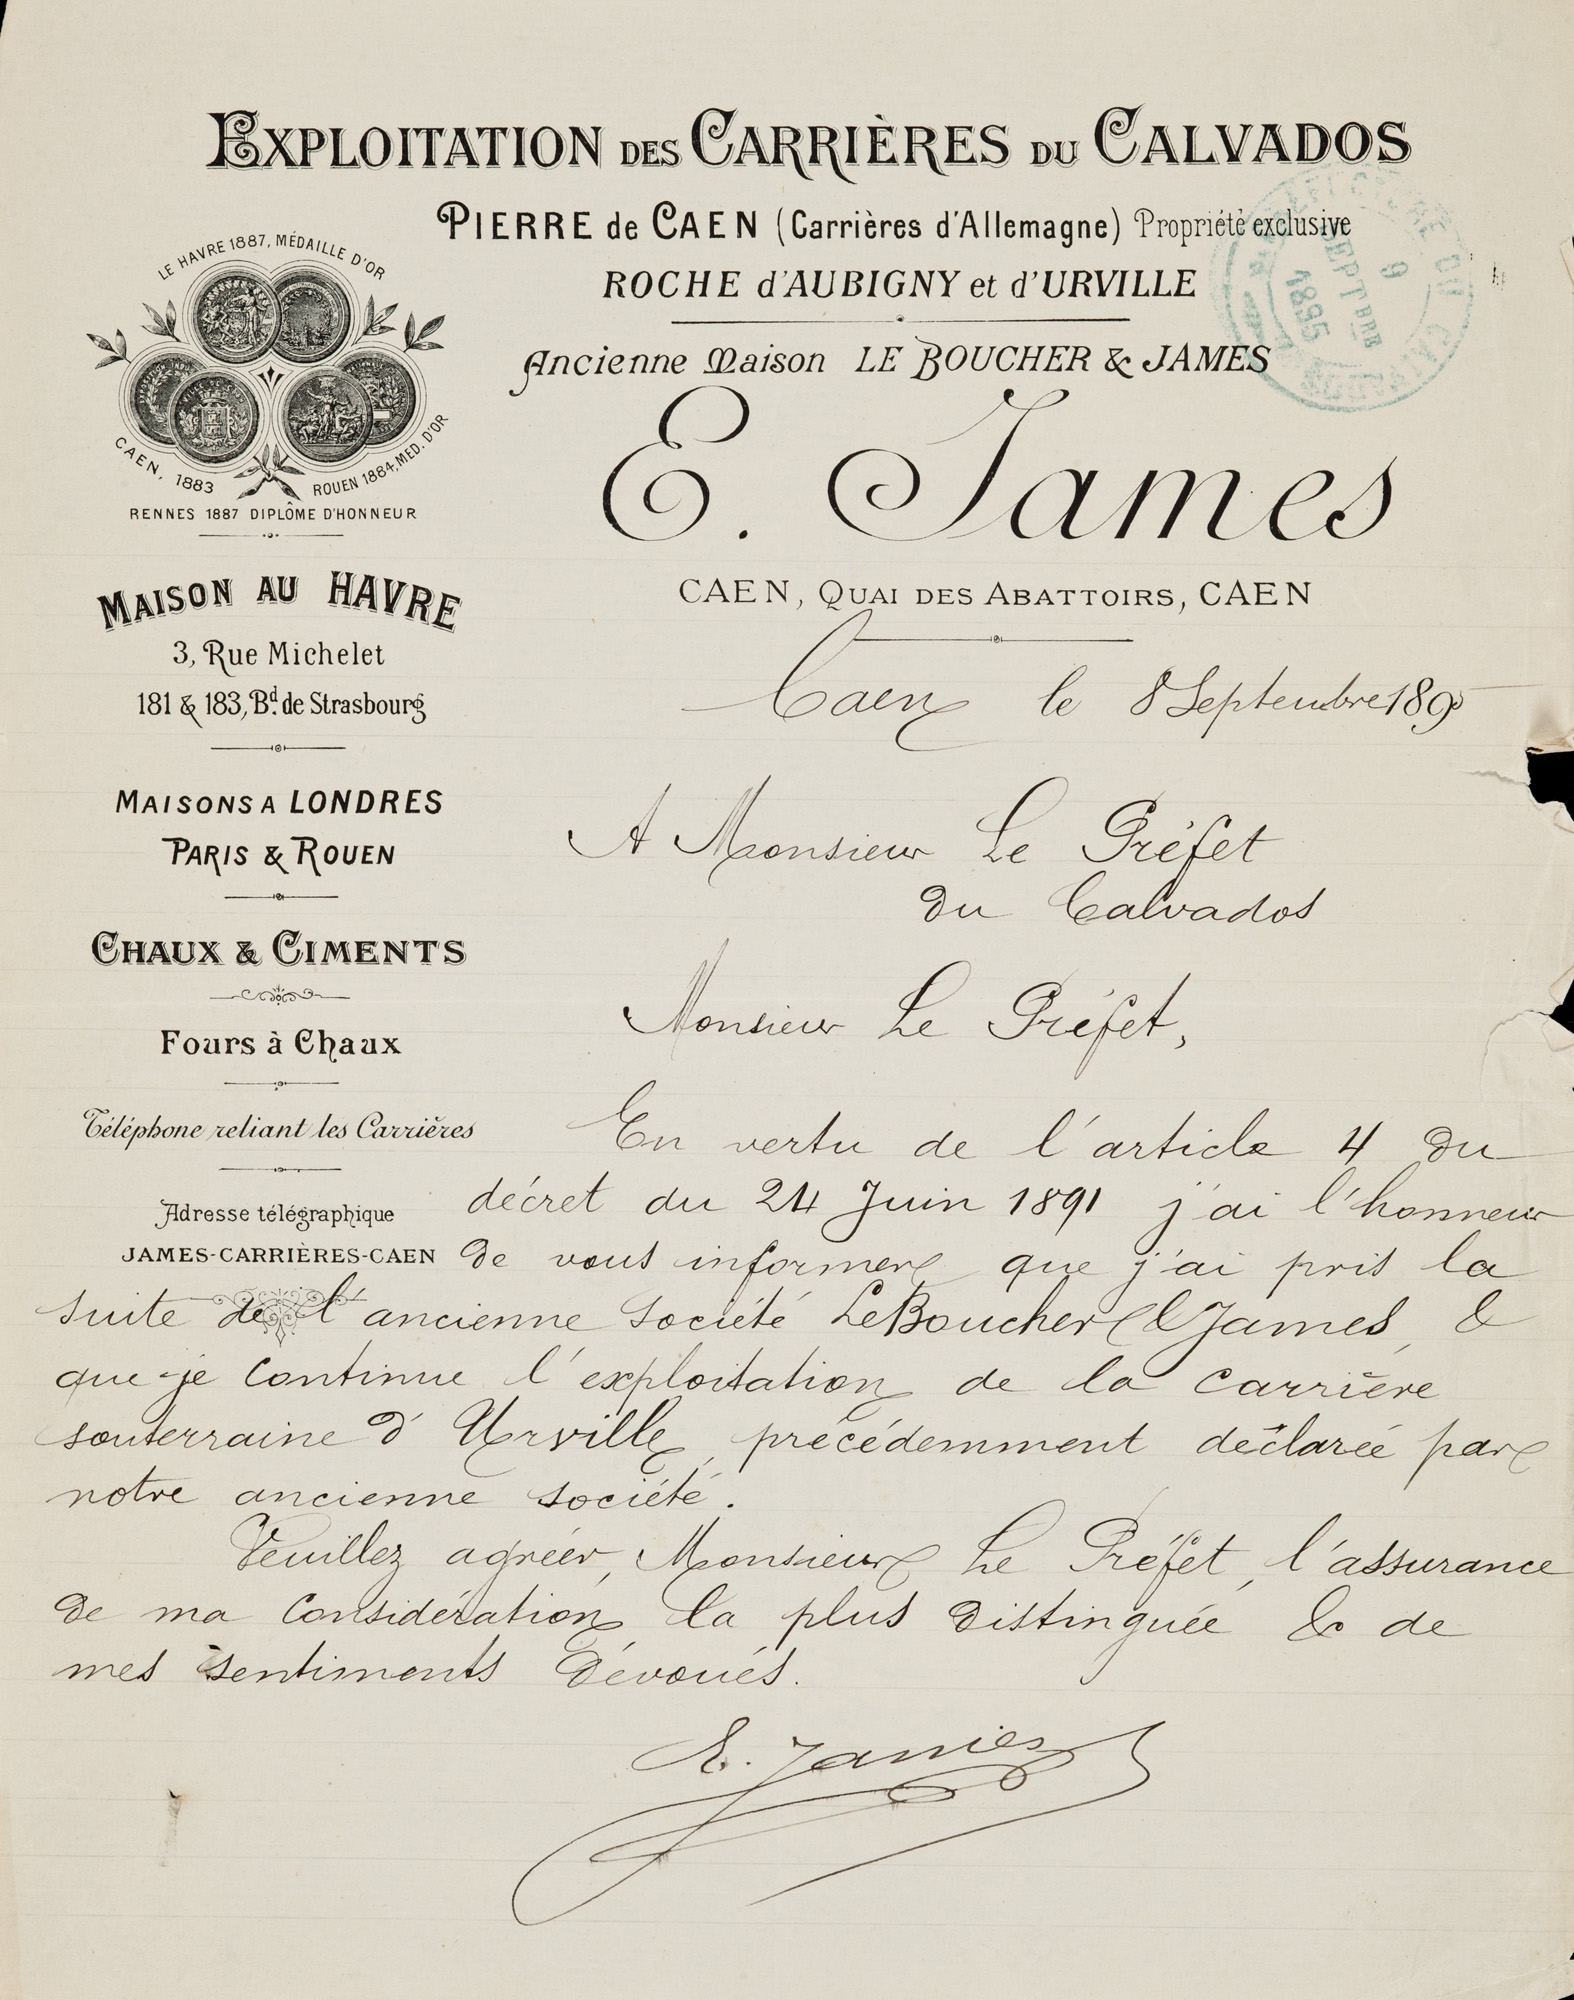 EXPLOITATION DES CARRIÈRES DU CALVADOS
PIERRE de CAEN (Carrières d'Allemagne) Propriété exclusive
ROCHE d'AUBIGNY et d'URVILLE
Ancienne Maison LE BOUCHER & JAMES
E. James
CAEN, QUAI DES ABATTOIRS, CAEN
9
SEPTBRE
1895
LE HAVRE 1887, MÉDAILLE D'OR
CAEN, 1883
ROUEN 1884, MED. D'OR
RENNES 1887 DIPLÔME D'HONNEUR
MAISON AU HAVRE
3, Rue Michelet
181 & 183, Bd. de Strasbourg
MAISONS A LONDRES
PARIS & ROUEN
CHAUX & CIMENTS
Fours à Chaux
Téléphone reliant les Carrières
Adresse télégraphique
JAMES-CARRIÈRES-CAEN
Caen le 8 Septembre 1895
A Monsieur Le Préfet
du Calvados
Monsieur Le Préfet,
En vertu de l'article 4 du
décret du 24 Juin 1891 j'ai l'honneur
de vous informer que j'ai pris la
suite de l'ancienne société LeBoucher & James, &
que je continue l'exploitation de la carrière
souterraine d'Urville, précédemment déclarée par
notre ancienne société.
Veuillez agréer, Monsieur Le Préfet, l'assurance
de ma considération la plus distinguée & de
mes sentiments dévoués.
E. James